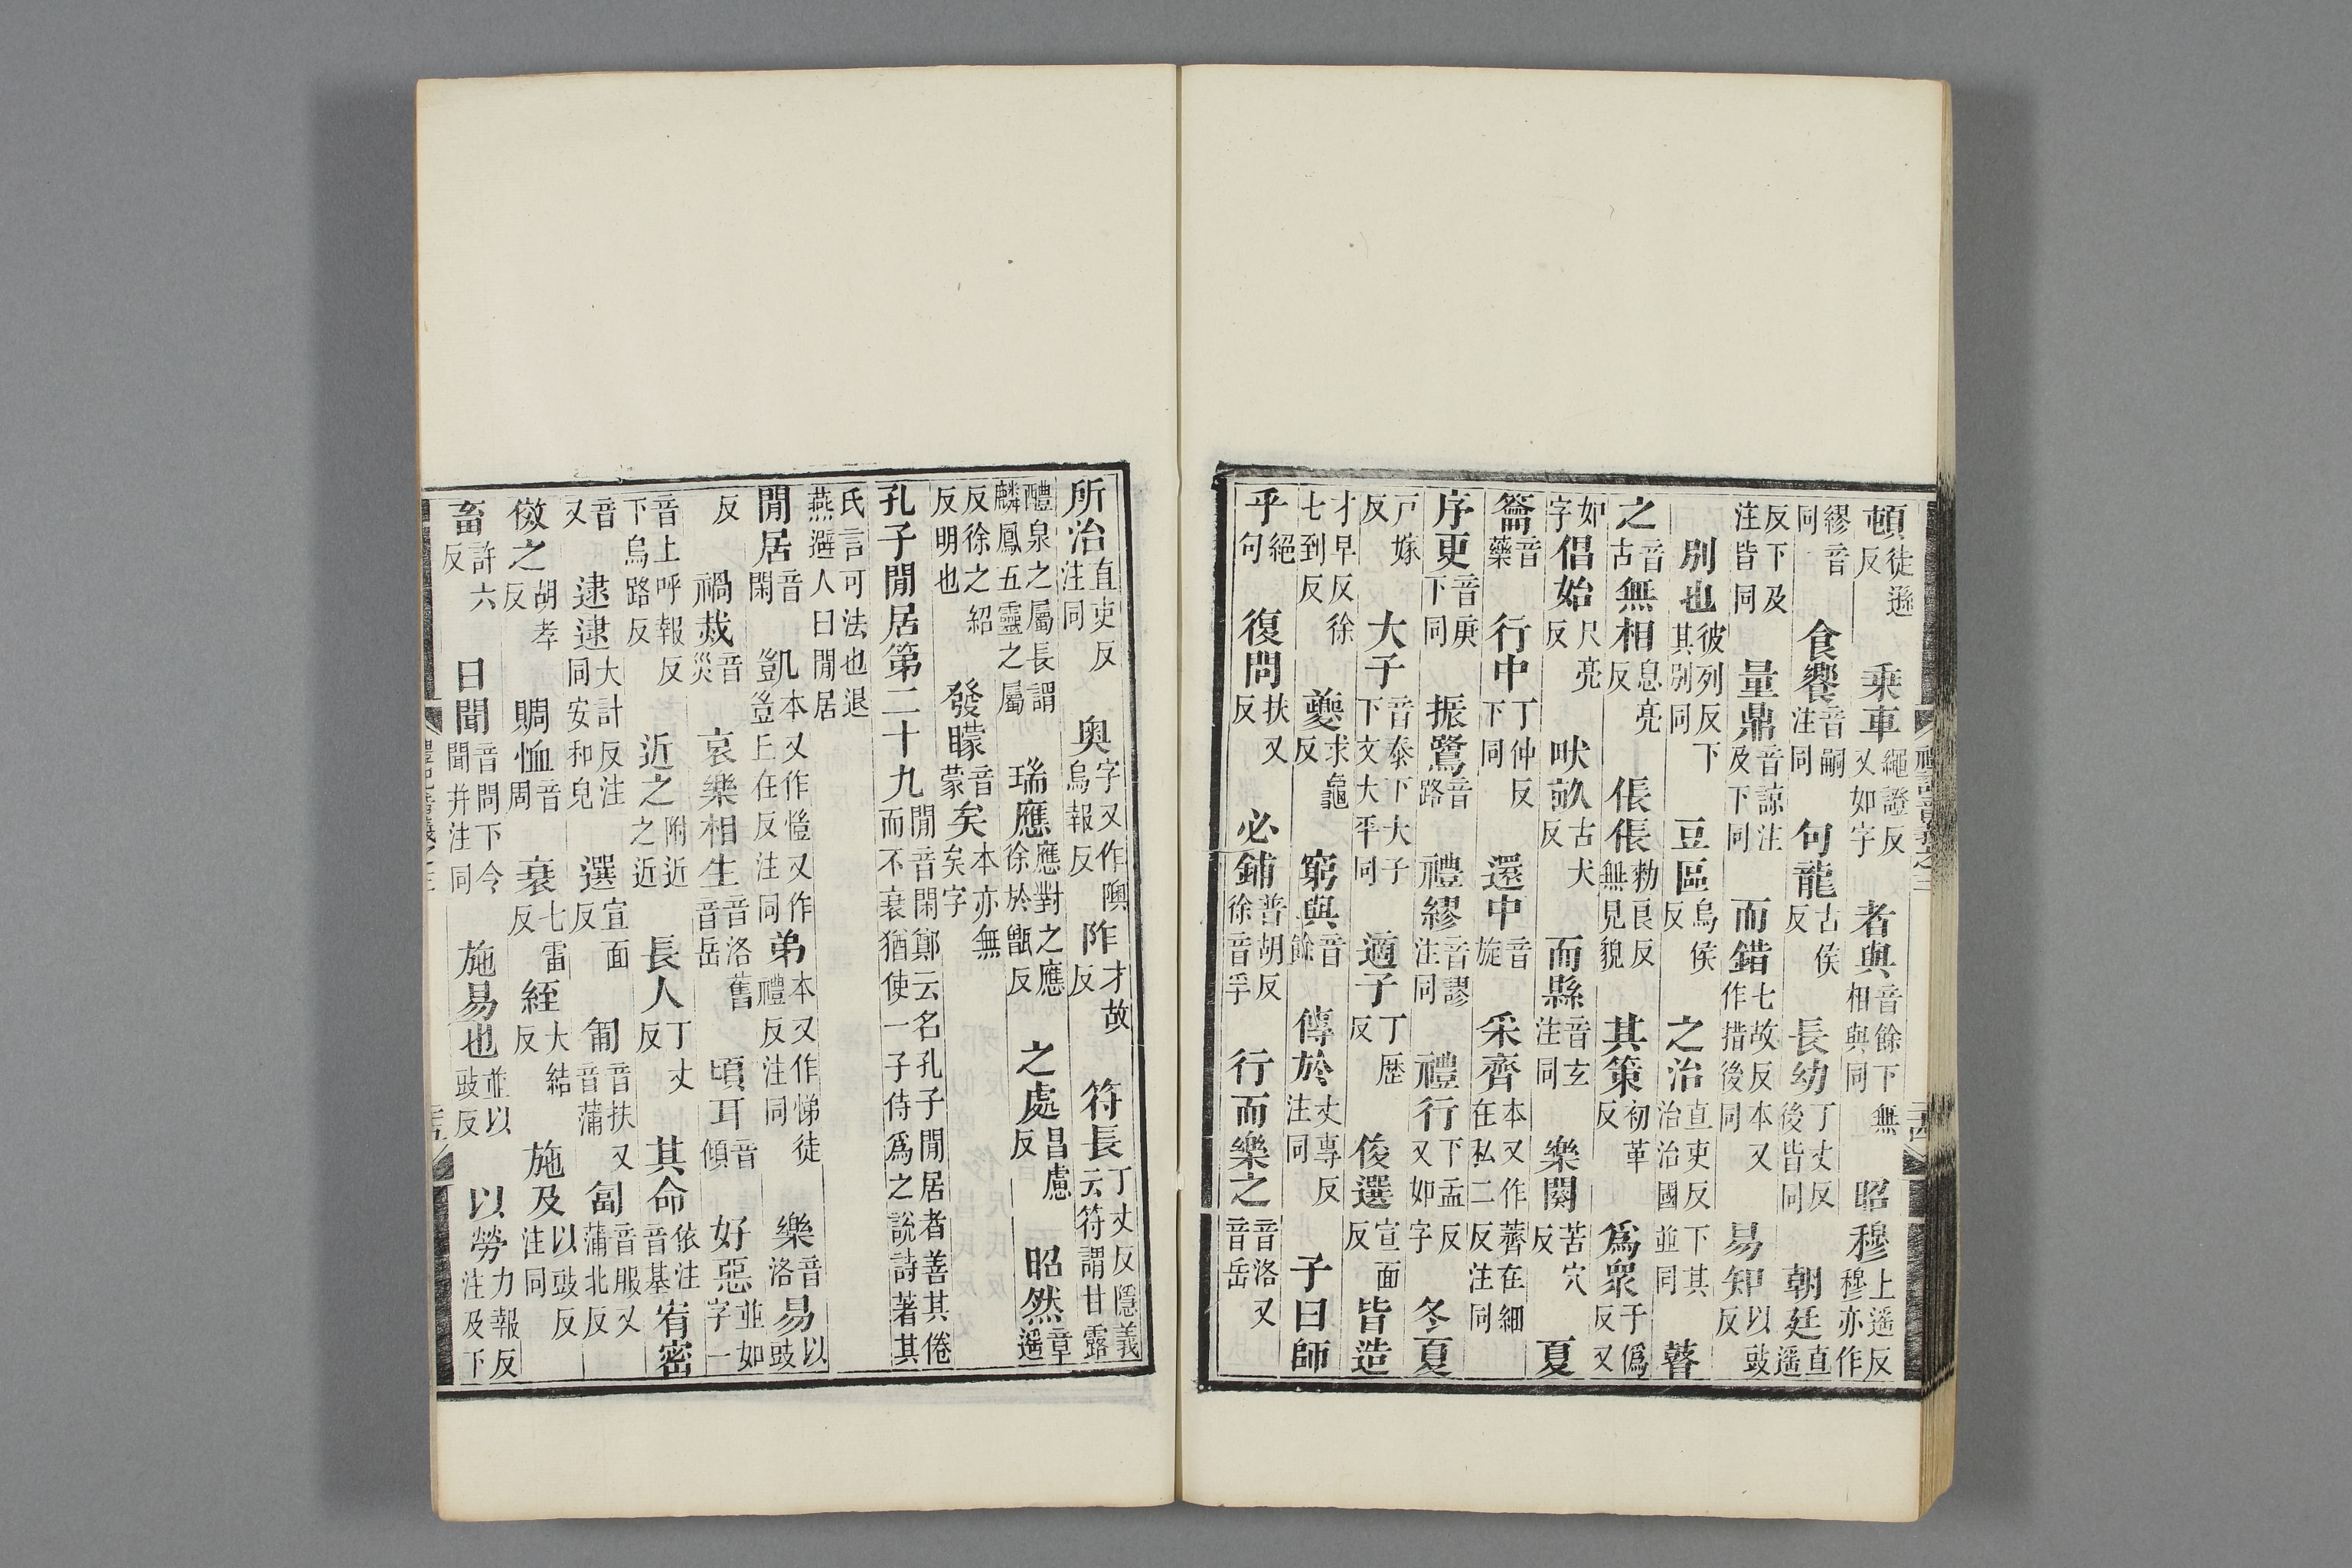 頓徒遜反 乗車繩證反又如字 者與音餘下無相與同 昭穆上遥反穆亦作
繆音同 食饗音嗣注同 句龍古侯反 長幼丁丈反後皆同 朝廷直遥
反下及注皆同 量鼎音諒注及下同 而錯七故反本又作措後同 易知以豉反
別也彼列反下其別同 豆區烏侯反 之治直吏反治國下其並同 瞽
之音古 無相息亮反 倀倀勑良反無見貌 其策初革反 爲衆于僞反又
如字 倡始尺亮反 吠畝古犬反 而縣音玄注同 樂闋苦穴反 夏
籥音藥 行中丁仲反下同 還中音旋 采齊本又作薺在細在私二反注同
序更音庚下同 振鷺音路 禮繆音謬注同 禮行下孟反又如字 冬夏
戸嫁反 大子音泰下大子下文大平同 適子丁歴反 俊選宣面反 皆造
才早反徐七到反 夔求龜反 窮與音餘 傳於丈專反注同 子曰師
乎絕句 復問扶又反 必鋪普胡反徐音孚 行而樂之音洛又音岳
所治直吏反注同 奥字又作隩烏報反 阼才故反 符長丁丈反隱義云符謂甘露
醴泉之屬長謂麟鳳五靈之屬 瑞應應對之應徐於甑反 之處昌慮反 昭然章遥
反徐之紹反明也 發矇音蒙 矣本亦無矣字
孔子閒居第二十九閒音閑鄭云名孔子閒居者善其倦而不衰猶使一子侍爲之說詩著其
氏言可法也退燕避人曰閒居
閒居音閑 凱本又作愷又作豈上在反注同 弟本又作悌徒禮反注同 樂音洛 易以豉
反 禍烖音災 哀樂相生音洛舊音岳 頃耳音傾 好惡並如字一
音上呼報反下烏路反 近之附近之近 長人丁丈反 其命依注音基 宥密
音又 逮逮大計反注同安和皃 選宣面反 匍音扶又音蒲 匐音服又蒲北反
傚之胡孝反 賙恤音周 衰七雷反 絰大結反 施及以豉反注同
畜許六反 日聞音問下令聞并注同 施易也並以豉反 以勞力報反注及下